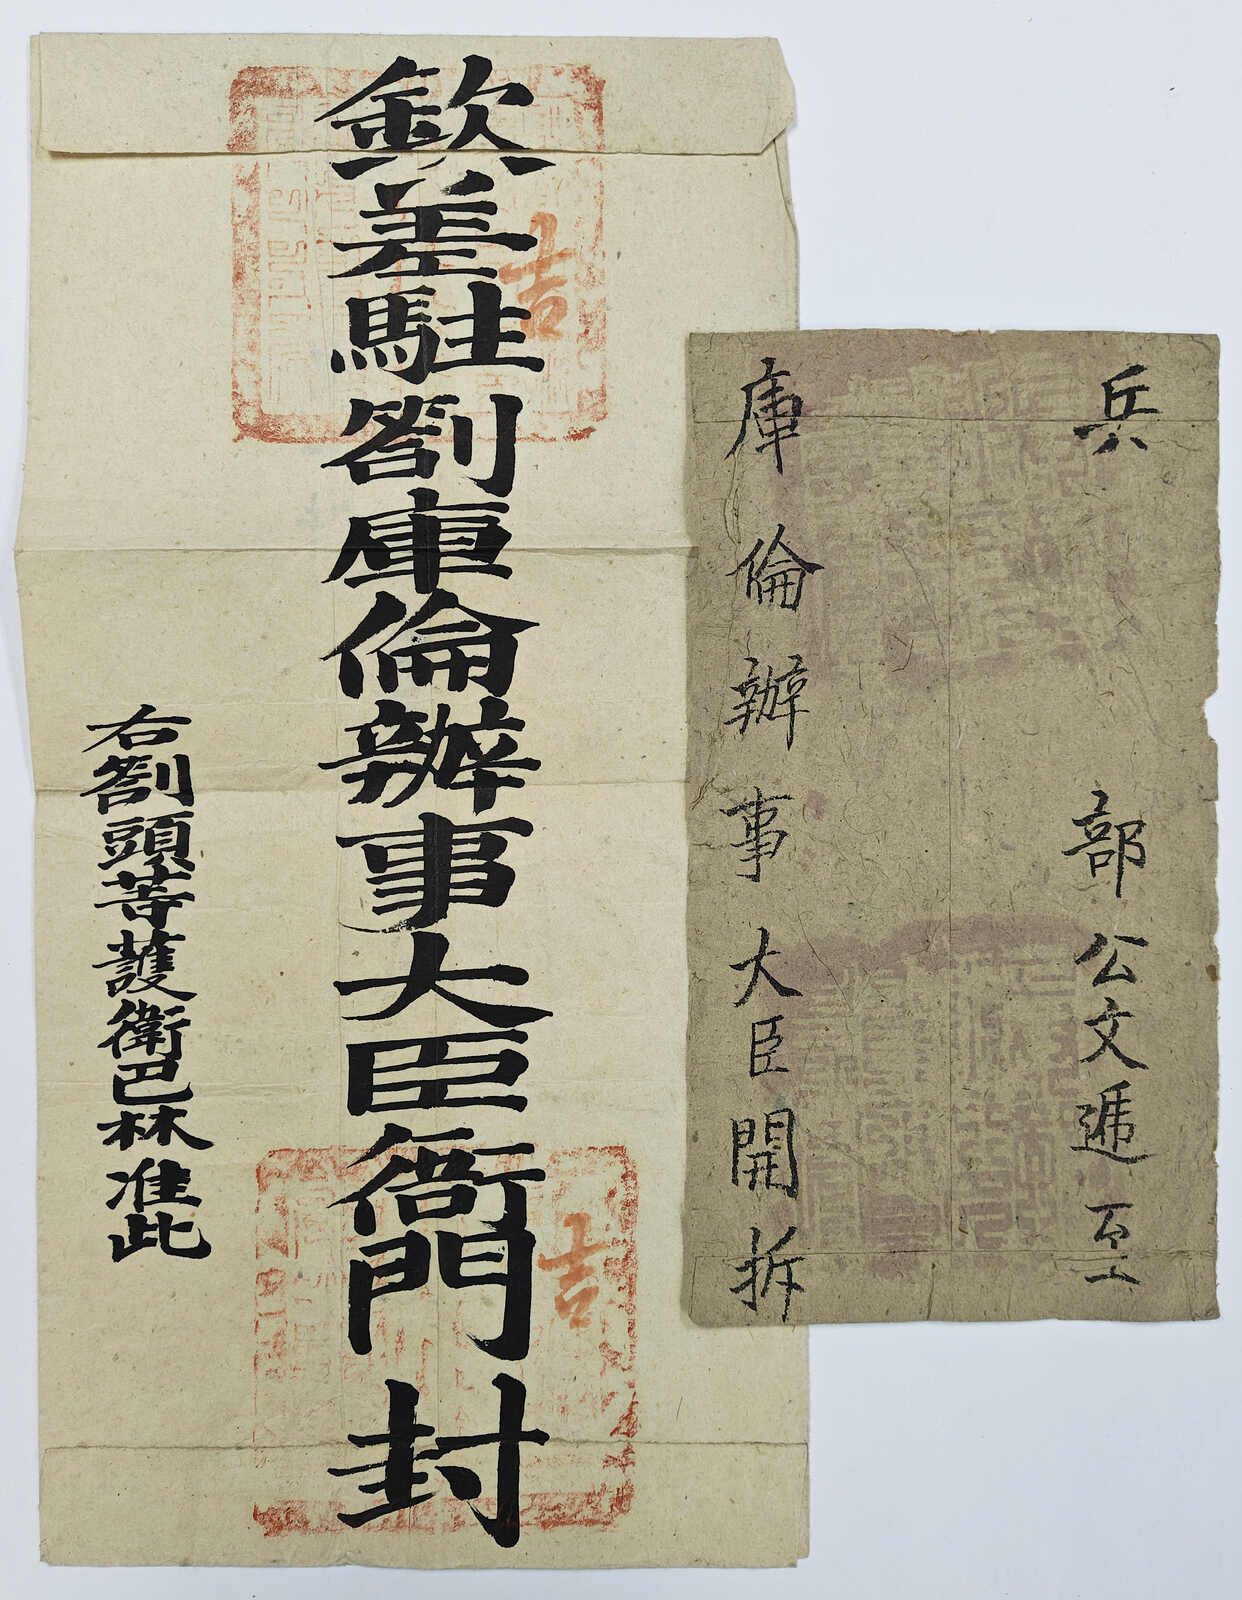 欽差駐劄庫倫辦事大臣衙門封
吉
吉
右劄頭等護衛巴林准此
兵部公文遞至
庫倫辦事大臣開拆